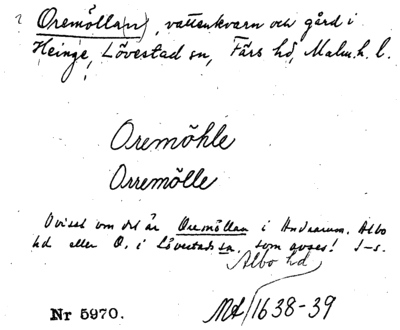 Oremölla(n), vattenkvarn och gård i
Heinge, Lövestad sn, Färs hd, Malm. h. l.
Oremöhle
Orremölle
Ovisst om det är Oremöllan i Andrarum, Albo
hd eller O. i Lövestads sn, som avses! J-s.
Albo hd
Mt 1638-39
Nr 5970.